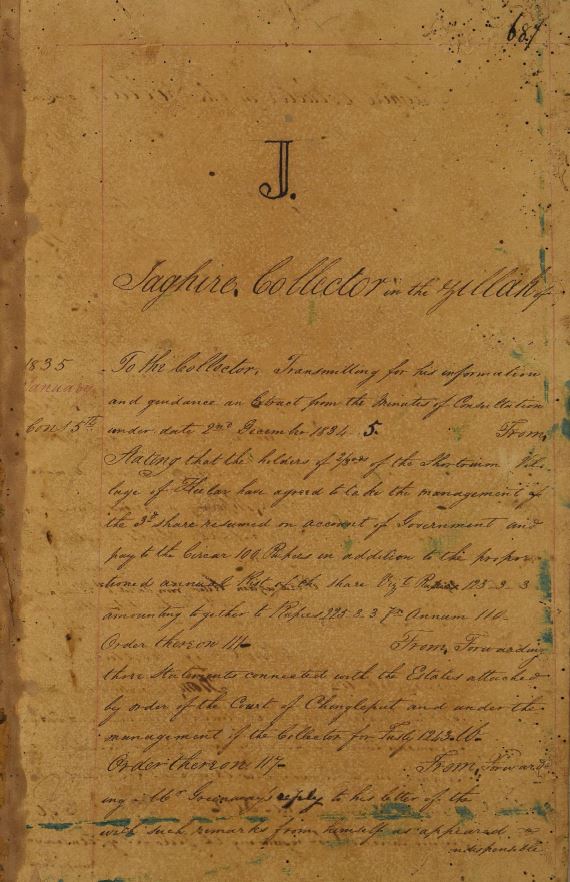 687
J.
Jaghire. Collector in the Zillah of
1835
January
Cons 5th
To the Collector, Transmitting for his information
and guidance an Extract from the Minutes of Consultation
under date 2nd December 1834. 5. From,
Stating that the holders of 2/3rds of the Shortrium Vil-
lage of have agreed to take the management of
the 3d share resumed on account of Government and
pay to the Circar 100 Rupees in addition to the propor-
tioned annual Kist of the share Vizt Rupees 125-3-3
amounting together to Rupees 225-3-3 pr Annum 116-
Order thereon 114- From, Forwarding
there Statements connected with the Estates attached
by order of the Court of Chingleput and under the
management of the Collector for Fusly 1243.
Order thereon 117- From, Forward-
ing Mr Greenway's reply to his letter of the
with such remarks from himself as appeared
indispensable